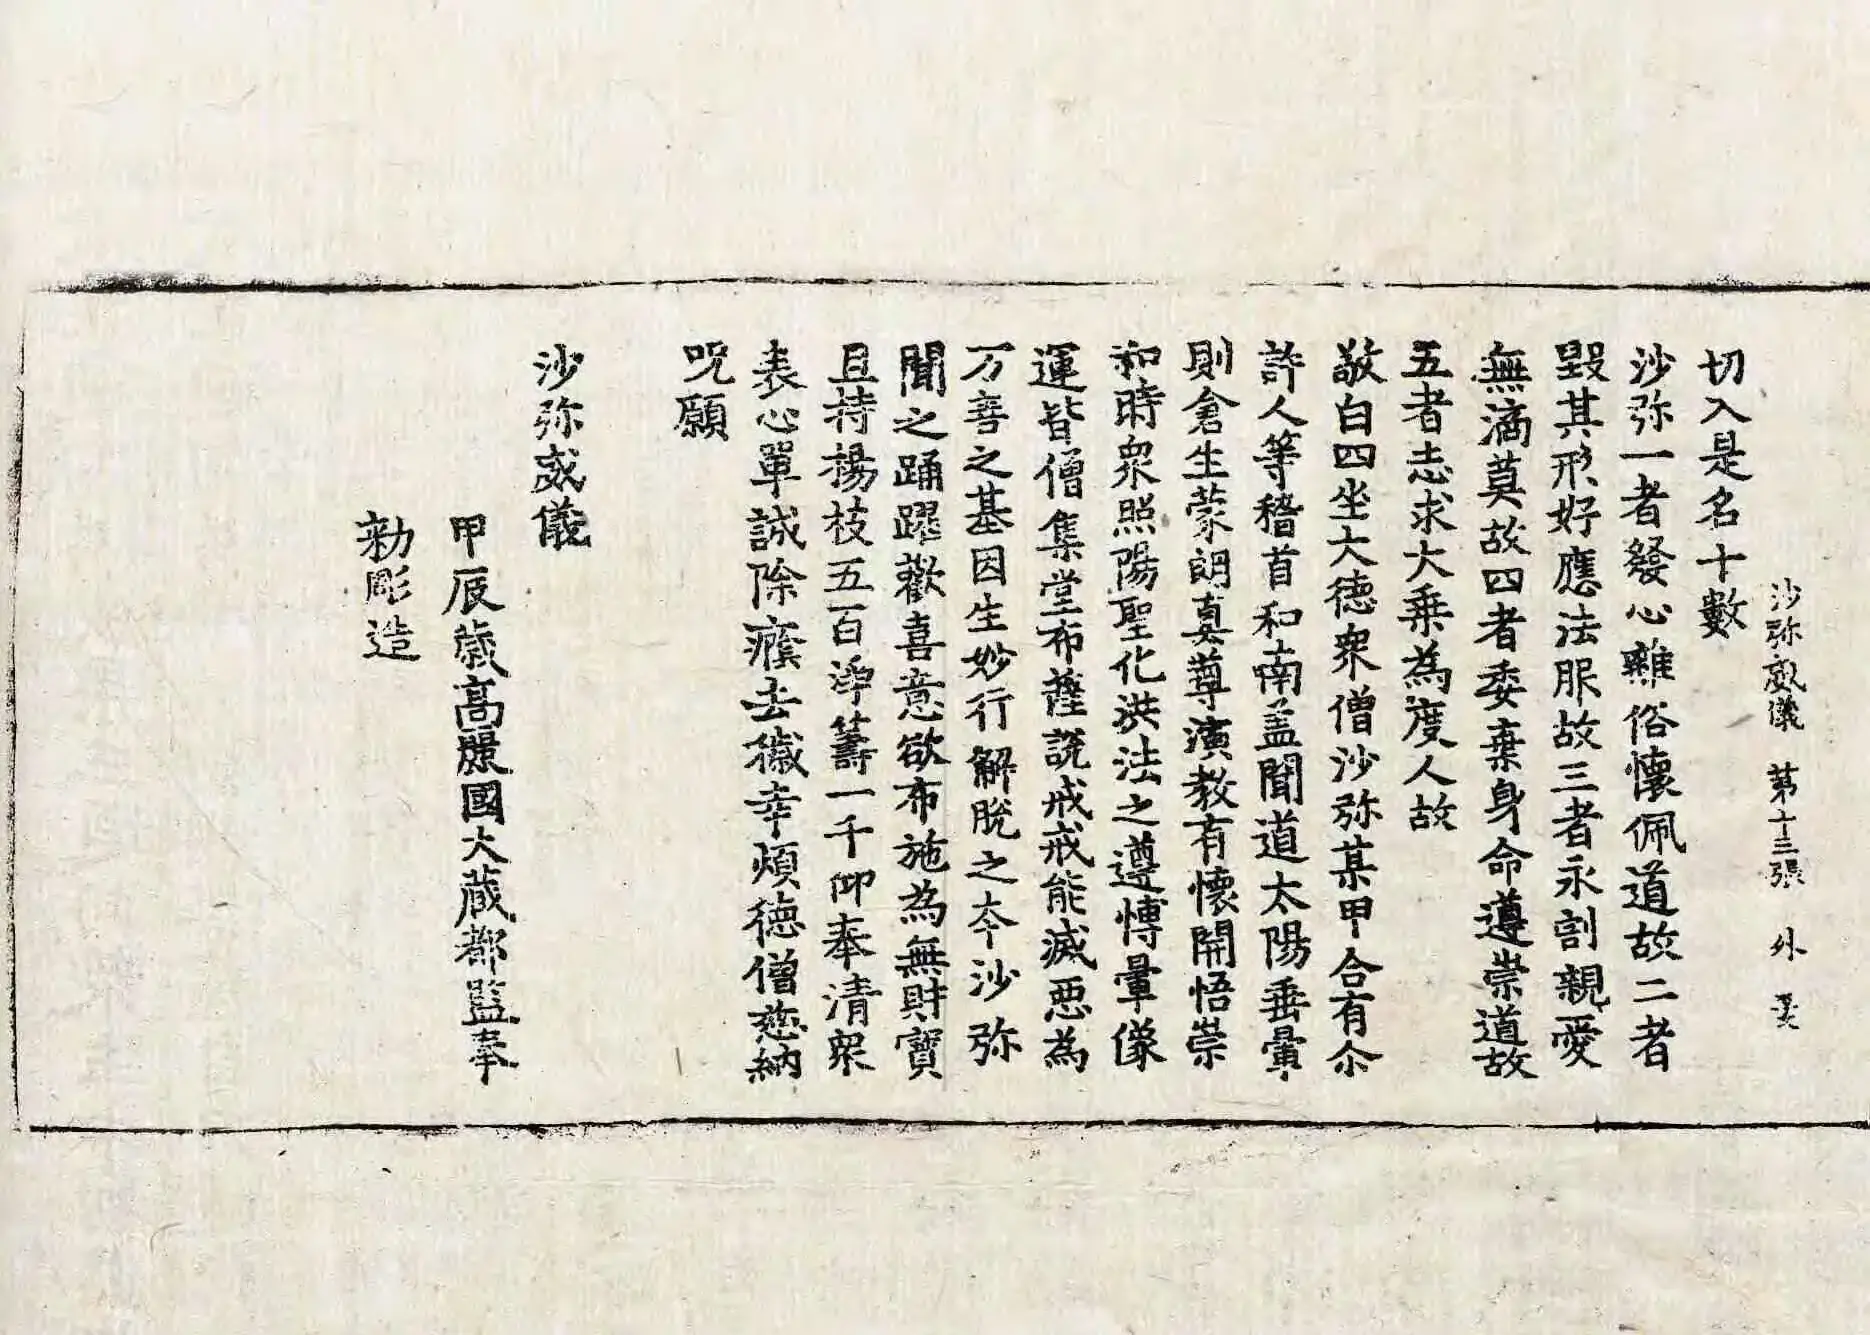 沙弥威儀 第十三張 外
切入是名十數
沙弥一者發心離俗懷佩道故二者
毀其形好應法服故三者永割親愛
無適莫故四者委棄身命遵崇道故
五者志求大乗為度人故
敬白四坐大德衆僧沙弥某甲合有尒
許人等稽首和南盖聞道太陽垂暈
則倉生蒙朗真尊演教有懷開悟崇
和時衆照陽聖化洪法之遵慱暈像
運皆僧集堂布薩説戒戒能滅惡為
万善之基因生妙行解脫之夲沙弥
聞之踊躍歡喜意欲布施為無財寶
且持楊枝五百淨籌一千仰奉清衆
表心單誠除癡去穢幸煩德僧慈納
呪願
沙弥威儀
甲辰歳髙麗國大蔵都監奉
勑彫造